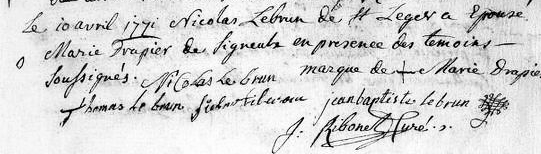 Le 10 avril 1771 Nicolas Lebrun de St Leger a Epousé
Marie Drapier de Signeulx en presence des temoins
soussignés. Nicolas le brun marque de + Marie Drapier
Thomas le brun jeanbaptiste lebrun
J. Ribonet Curé